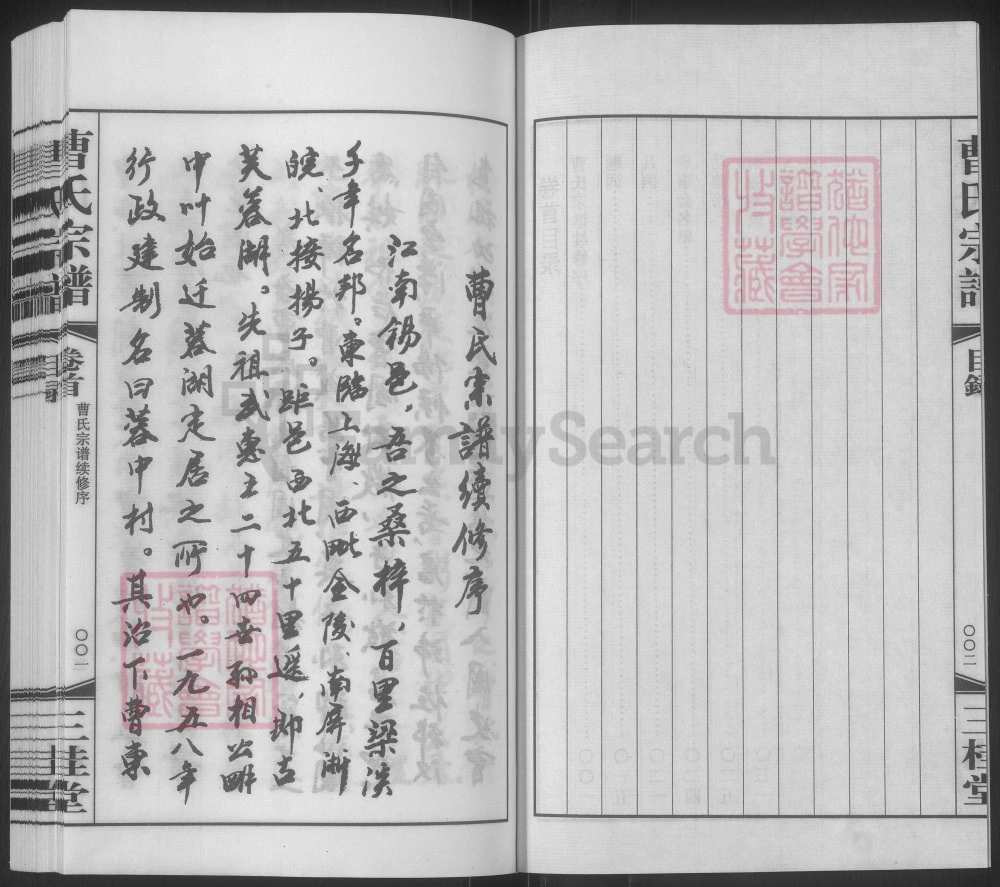 曹氏宗譜
目錄
〇〇二
三桂堂
猶他家譜學會收藏
曹氏宗譜續修序
江南锡邑，吾之桑梓，百里梁溪
千年名邦。東臨上海、西毗金陵、南屏浙
皖、北接揚子。距邑西北五十里遥，即古
芙蓉湖。先祖武惠王二十四世孙相公畊
中叫始迁蓉湖定居之所也。一九五八年
行政建制名曰蓉中村。其治下曹東
猶他家譜學會收藏
曹氏宗谱
卷首
曹氏宗谱续修序
〇〇一
三桂堂
FamilySearch